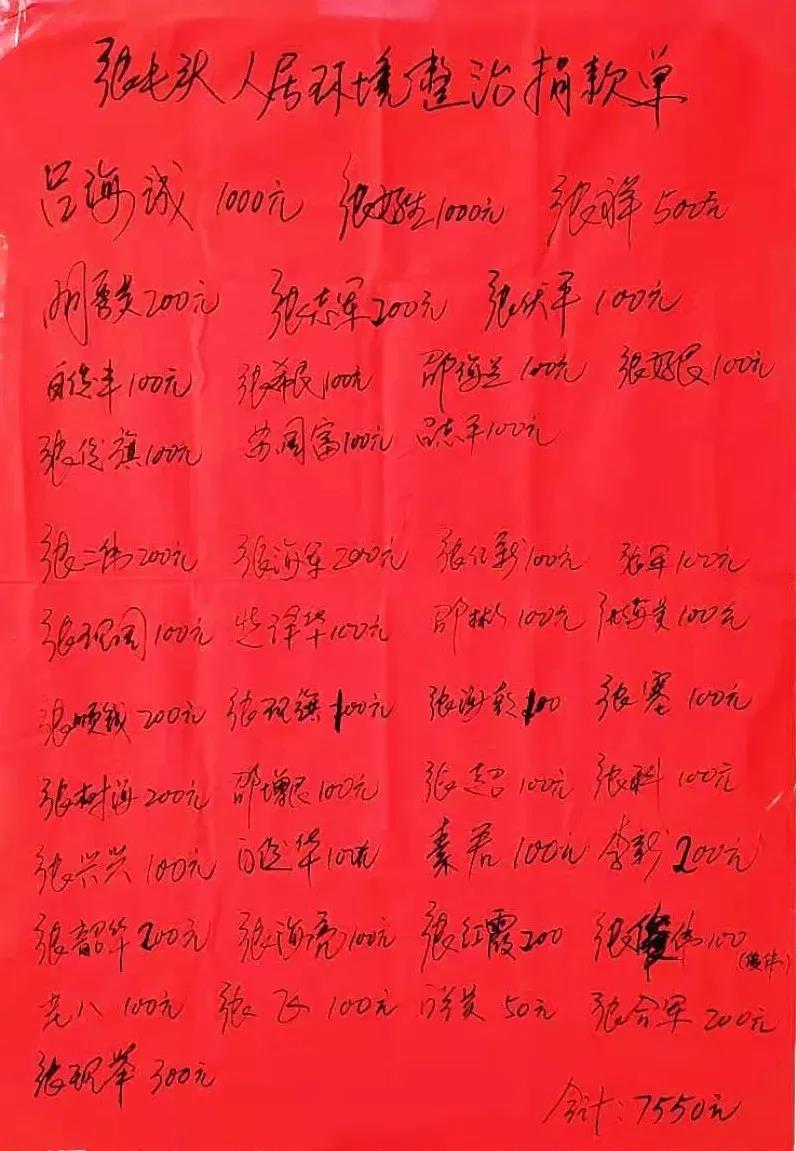 张七头人居环境整治捐款单
吕海诚 1000元 张好生1000元 张祥 500元
200元 张志军200元 张伏军 100元
100元 张希民100元 邵海兰 100元 张好民100元
张俊旗100元 苏周富100元 吕志军100元
张二伟200元 张海军200元 张仁新100元 张军100元
张现周100元 楚泽华100元 邵彬100元 张海英100元
张顺钱200元 张现旗100元 张海新100 张塞100元
张树海200元 邵增民100元 张超100元 张科100元
张兴兴100元 100元 素君100元 李新200元
张韶华200元 张海亮100元 张红霞200 张俊伟100
(俊伟)
老八100元 张飞100元 50元 张合军200元
张现革300元
合计:7550元